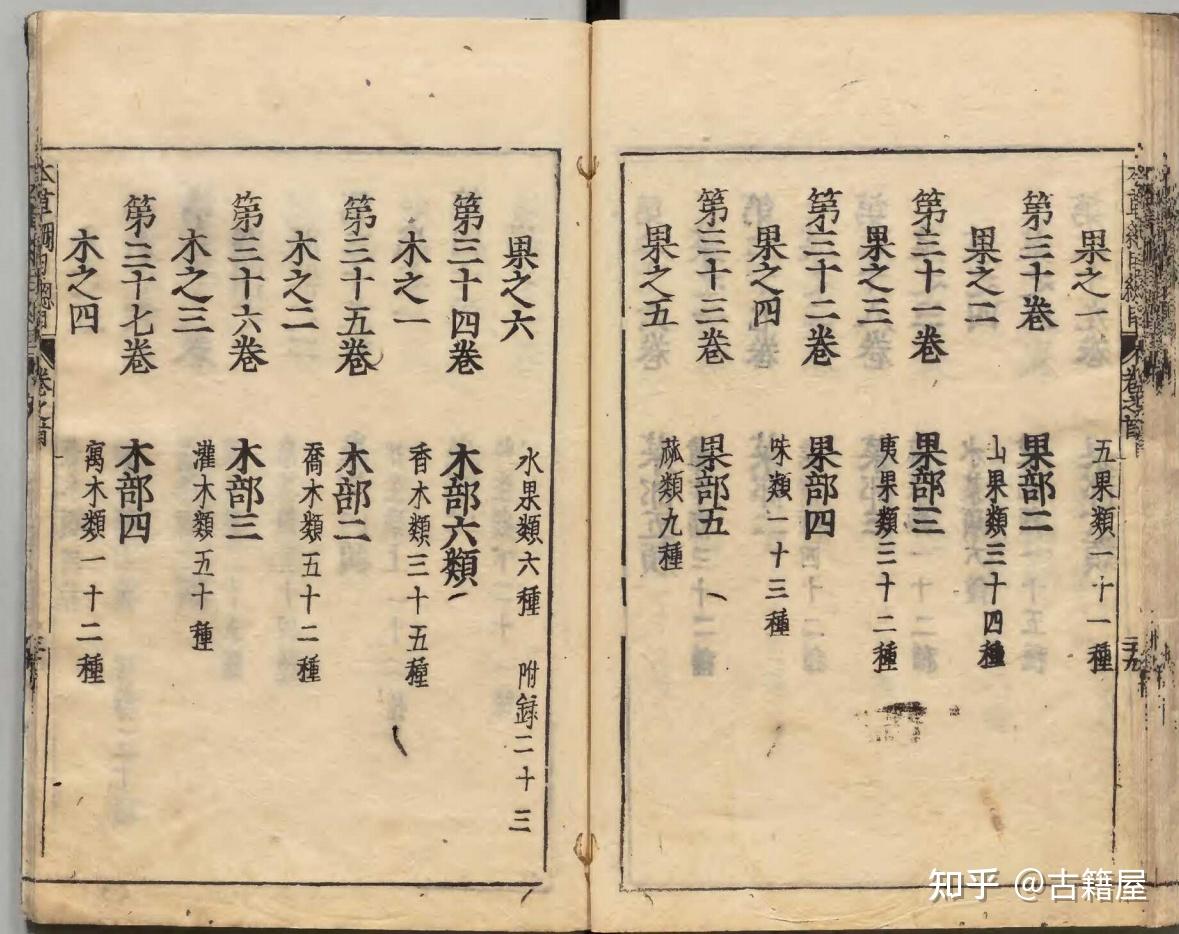 果之一 五果類一十一種
第三十卷 果部二
果之二 山果類三十四種
第三十一卷 果部三
果之三 夷果類三十二種
第三十二卷 果部四
果之四 味類一十三種
第三十三卷 果部五
果之五 蓏類九種
果之六 水果類六種 附錄二十三
第三十四卷 木部六類
木之一 香木類三十五種
第三十五卷 木部二
木之二 喬木類五十二種
第三十六卷 木部三
木之三 灌木類五十種
第三十七卷 木部四
木之四 寓木類一十二種
本草綱目總目 卷之首
知乎 @古籍屋